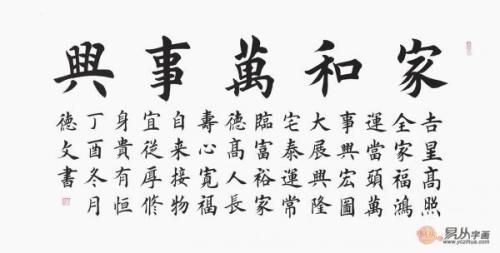 家和萬事興
吉星高照
全家福鴻
運當頭萬
事興宏圖
大展興隆
宅泰運常
臨富裕家
德高人長
壽心寬福
自来接物
宜從厚修
身貴有恒
丁酉冬月
德文書
易从字画
www.yczihua.com